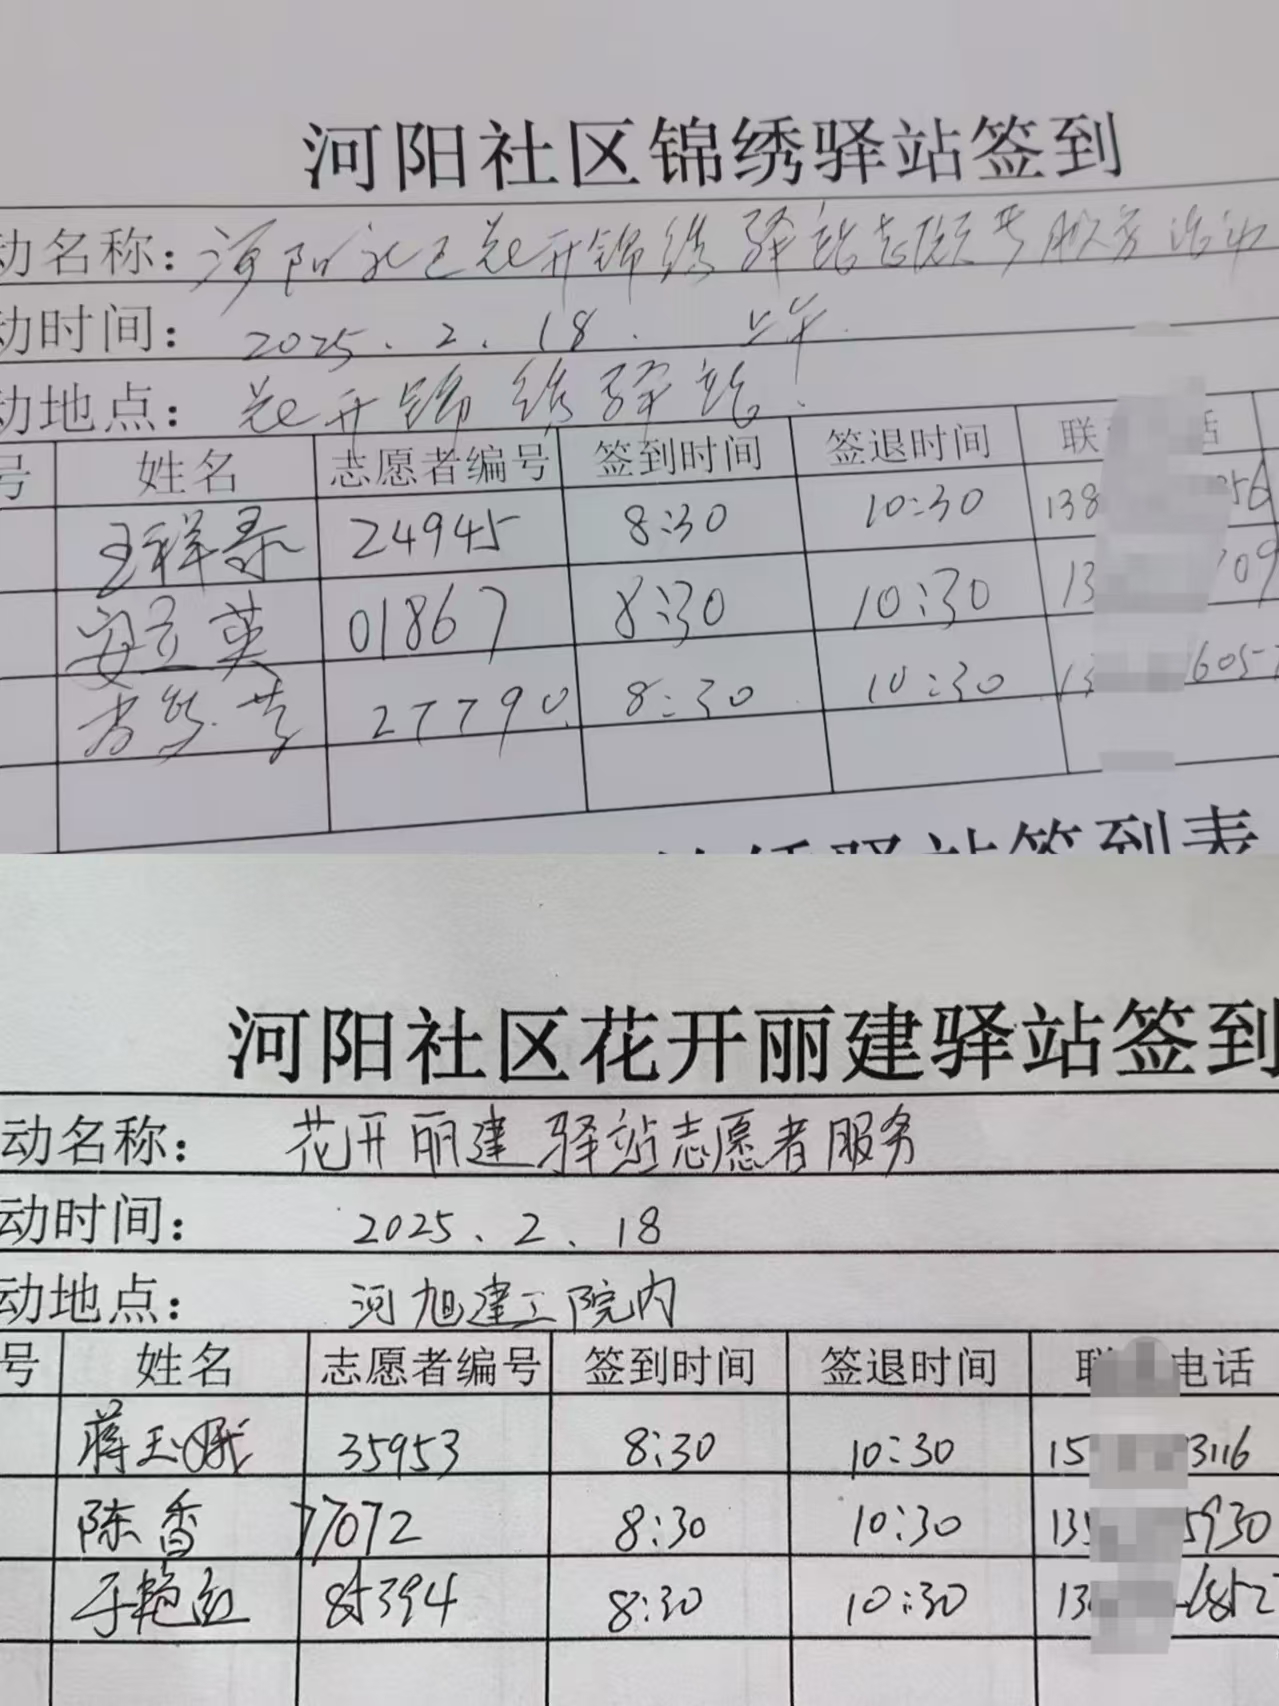 河阳社区锦绣驿站签到
动名称：河阳社区花开锦绣驿站志愿者服务活动
动时间：2025.2.18. 上午.
动地点：花开锦绣驿站
号 姓名 志愿者编号 签到时间 签退时间 联 话
王祥泰 24945 8:30 10:30 138 256
安立英 01867 8:30 10:30 13 709
27790 8:30 10:30 13 6057
绣驿站签到表
河阳社区花开丽建驿站签到
动名称：花开丽建驿站志愿者服务
动时间：2025.2.18
动地点：河旭建工院内
号 姓名 志愿者编号 签到时间 签退时间 联 电话
蒋玉娥 35953 8:30 10:30 15 3116
陈香 77072 8:30 10:30 135 5930
于艳红 85394 8:30 10:30 13 1852